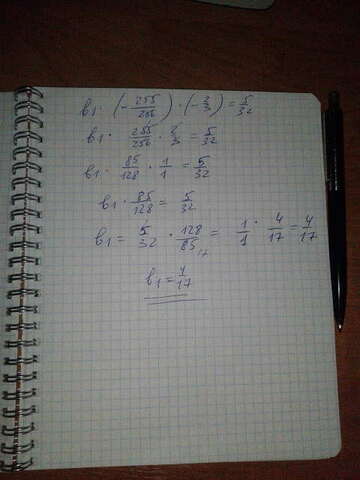 b1 · (-255/256) · (-2/3) = 5/32
b1 · 255/256 · 2/3 = 5/32
b1 · 85/128 · 1/1 = 5/32
b1 · 85/128 = 5/32
b1 = 5/32 · 128/85 17 = 1/1 · 4/17 = 4/17
b1 = 4/17